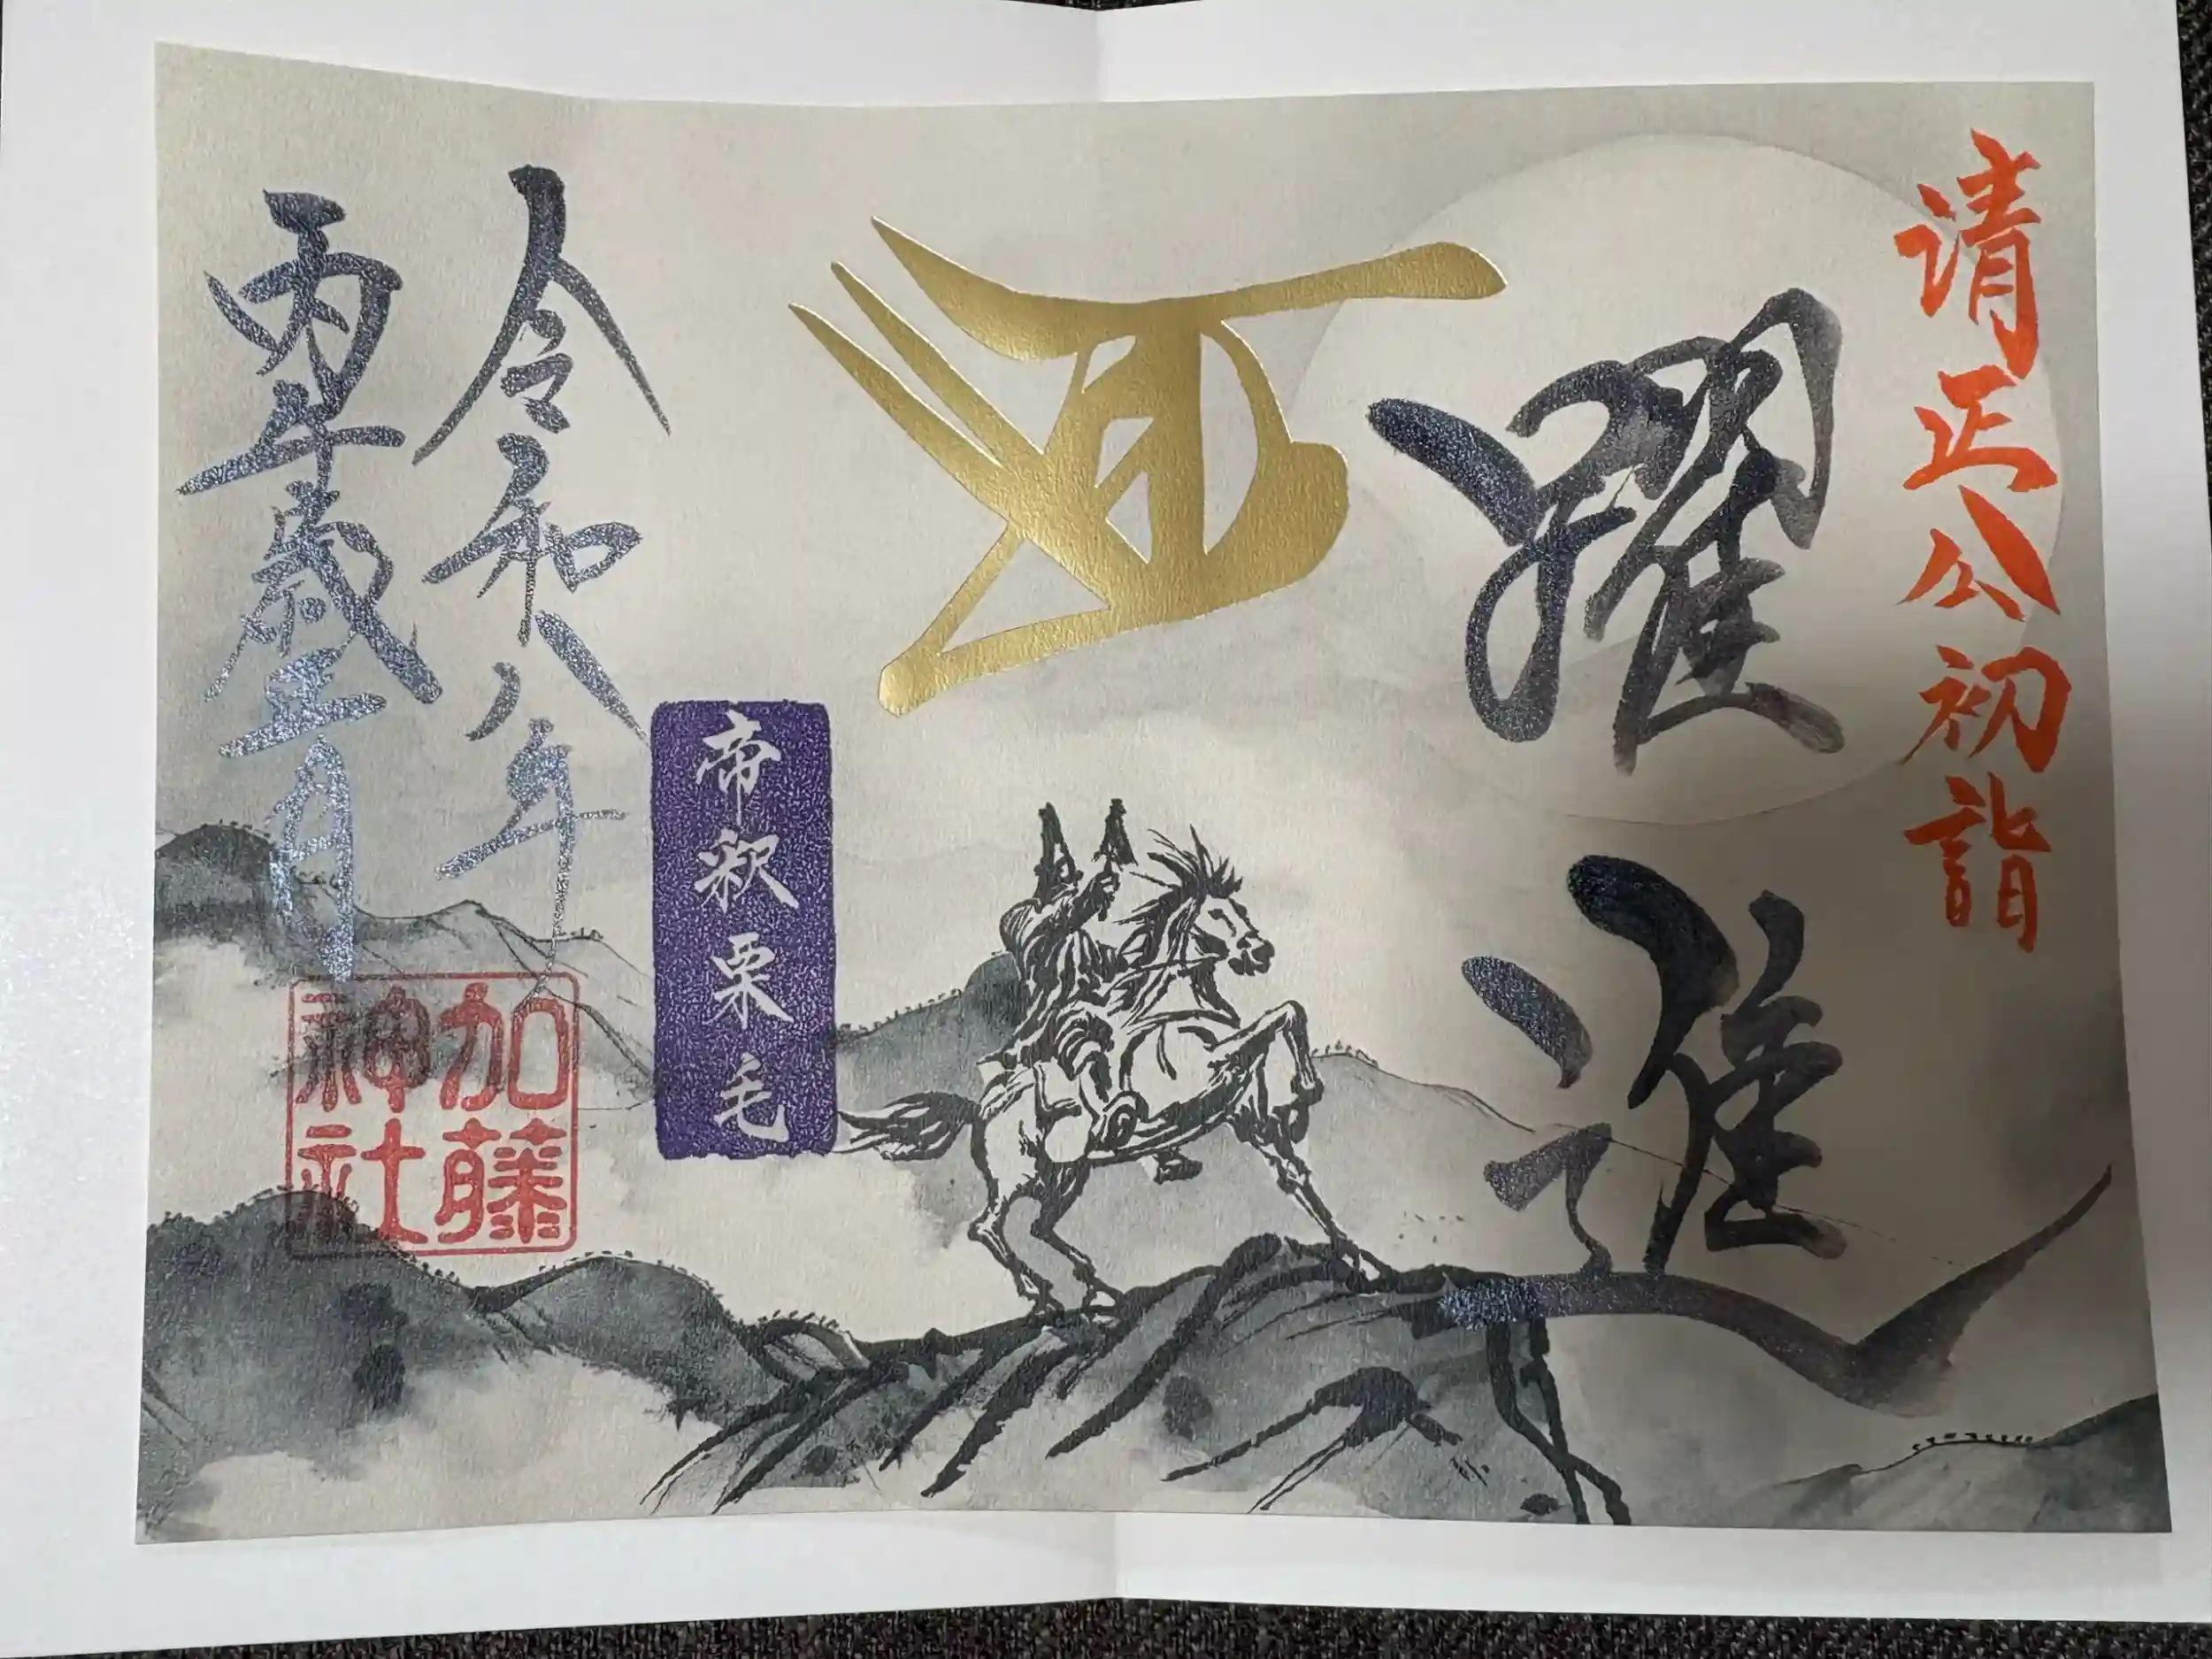 清正公初詣
躍進
帝釈栗毛
令和八年
丙午歳正月
加藤
神社